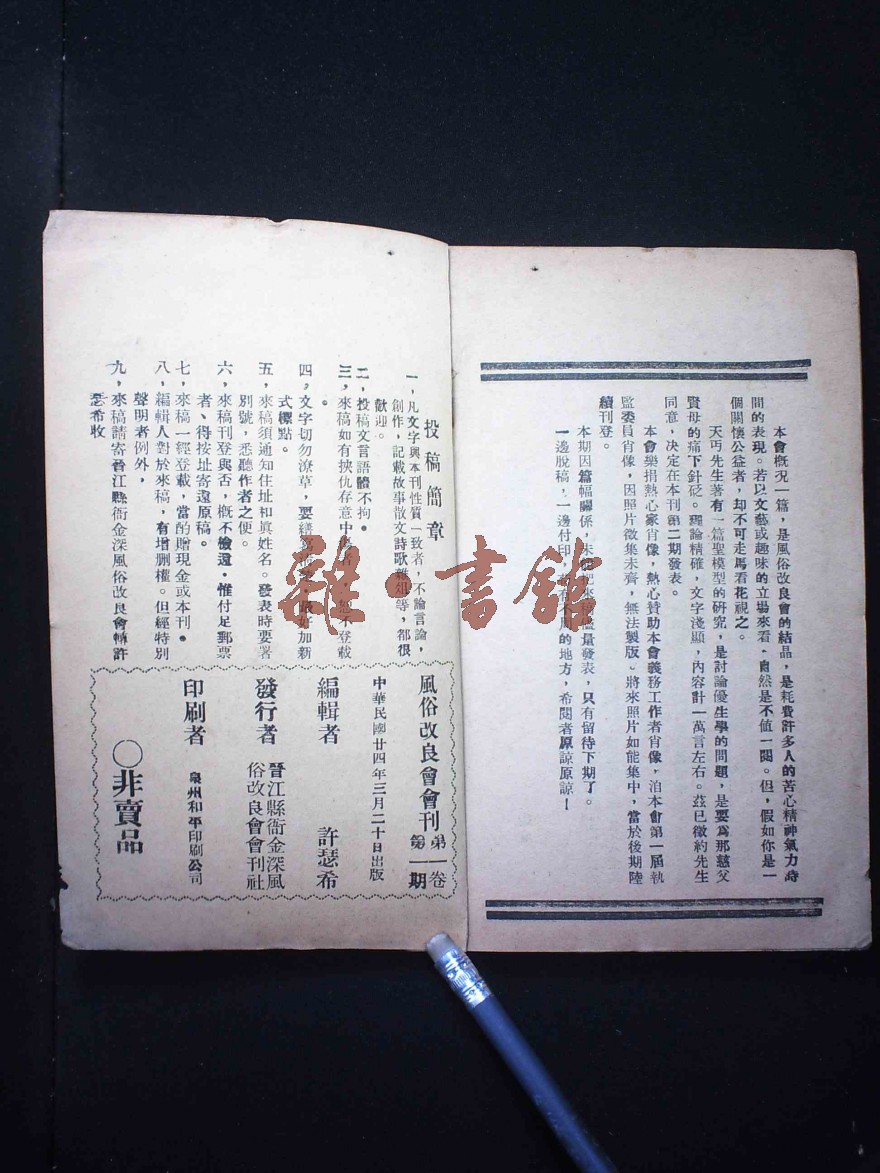 本會概况一篇，是風俗改良會的結晶，是耗費許多人的苦心精神氣力時
間的表現。若以文藝或趣味的立場來看・自然是不值一閱。但，假如你是一
個關懷公益者，却不可走馬看花視之。
天丐先生著有一篇聖模型的硏究，是討論優生學的問題，是要爲那慈父
賢母的痛下針砭。理論精確，文字淺顯，內容計一萬言左右。茲已徵約先生
同意，决定在本刊第二期發表。
本會樂捐熱心家肖像，熱心贊助本會義務工作者肖像，洎本會第一屆執
監委員肖像，因照片徵集未齊，無法製版。將來照片如能集中，當於後期陸
續刊登。
本期因篇幅關係，未能把來稿儘量發表，只有留待下期了。
一邊脫稿，一邊付印，的地方，希閱者原諒原諒！
投稿簡章
一，凡文字與本刊性質一致者，不論言論，
創作，記載故事散文詩歌雜俎等，都很
歡迎。
二，投稿文言語體不拘。
三，來稿如有挾仇存意中傷者，恕不登載
。
四，文字切勿潦草，要繕寫清楚，最好加新
式標點。
五，來稿須通知住址和眞姓名。發表時要署
別號，悉聽作者之便。
六，來稿刊登與否，槪不檢還・惟付足郵票
者、得按址寄還原稿。
七，來稿一經登載，當酌贈現金或本刊。
八，編輯人對於來稿，有增删權。但經特別
聲明者例外，
九，來稿請寄晉江縣衙金深風俗改良會轉許
瑟希收
風俗改良會會刊 第一卷 第一期
中華民國廿四年三月二十日出版
編輯者 許瑟希
發行者 晉江縣衙金深風俗改良會會刊社
印刷者 泉州和平印刷公司
○非賣品
雜・書館